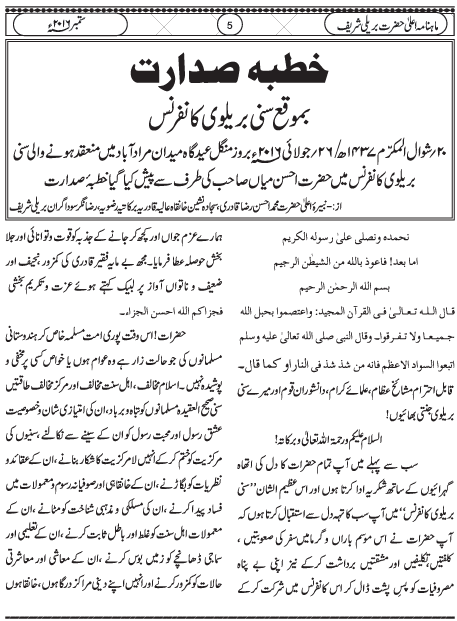 ماہنامہ اعلیٰ حضرت بریلی شریف
5
ستمبر ۲۰۱۶ء
خطبہ صدارت
بموقع سنی بریلوی کانفرنس
۲۰/ شوال المکرم ۱۴۳۷ھ/ ۲۶/ جولائی ۲۰۱۶ء بروز منگل عیدگاہ میدان مراد آباد میں منعقد ہونے والی سنی
بریلوی کانفرنس میں حضرت احسن میاں صاحب کی طرف سے پیش کیا گیا خطبۂ صدارت
از:- نبیرۂ اعلیٰ حضرت محمد احسن رضا قادری، سجادہ نشین خانقاہ عالیہ قادریہ برکاتیہ رضویہ، رضا نگر سوداگران بریلی شریف
نحمدہ ونصلی علیٰ رسولہ الکریم
اما بعد! فاعوذ باللہ من الشیطٰن الرجیم
بسم اللہ الرحمٰن الرحیم
قال اللہ تعالیٰ فی القرآن المجید: واعتصموا بحبل اللہ
جمیعا ولا تفرقوا۔ وقال النبی صلی اللہ تعالیٰ علیہ وسلم
اتبعوا السواد الاعظم فانہ من شذ شذ فی النار او کما قال۔
قابل احترام مشائخ عظام، علمائے کرام، دانشوران قوم اور میرے سنی
بریلوی جنتی بھائیوں!
السلام علیکم ورحمۃ اللہ تعالیٰ وبرکاتہ!
سب سے پہلے میں آپ تمام حضرات کا دل کی اتھاہ
گہرائیوں کے ساتھ شکریہ ادا کرتا ہوں اور اس عظیم الشان ”سنی
بریلوی کانفرنس“ میں آپ سب کا تہہ دل سے استقبال کرتا ہوں کہ
آپ حضرات نے اس موسم باراں وگرما میں سفر کی صعوبتیں،
کلفتیں، تکلیفیں اور مشقتیں برداشت کرکے نیز اپنی بے پناہ
مصروفیات کو پس پشت ڈال کر اس کانفرنس میں شرکت کرکے
ہمارے عزم جواں اور کچھ کر جانے کے جذبہ کو قوت وتوانائی اور جلا
بخش حوصلہ عطا فرمایا۔ مجھ بے مایہ فقیر قادری کی کمزور، نحیف اور
ضعیف و ناتواں آواز پر لبیک کہتے ہوئے عزت و تکریم بخشی
فجزاکم اللہ احسن الجزاء۔
حضرات! اس وقت پوری امت مسلمہ خاص کر ہندوستانی
مسلمانوں کی جو حالت زار ہے وہ عوام ہوں یا خواص کسی پر مخفی و
پوشیدہ نہیں۔ اسلام مخالف، اہل سنت مخالف اور مرکز مخالف طاقتیں
سنی صحیح العقیدہ مسلمانوں کو تباہ و برباد، ان کی امتیازی شان و خصوصیت
عشق رسول اور محبت رسول کو ان کے سینے سے نکالنے، سنیوں کی
مرکزیت کو ختم کرکے انہیں لامرکزیت کا شکار بنانے، ان کے عقائد و
نظریات کو بگاڑنے، ان کے خانقاہی اور صوفیانہ رسوم و معمولات میں
فساد پیدا کرنے، ان کی مسلکی و مذہبی شناخت کو مٹانے، ان کے
معمولات اہل سنت کو غلط اور باطل ثابت کرنے، ان کے تعلیمی اور
سماجی ڈھانچے کو زمیں بوس کرنے، ان کے معاشی اور معاشرتی
حالات کو کمزور کرنے اور انہیں اپنے دینی مراکز درگاہوں، خانقاہوں